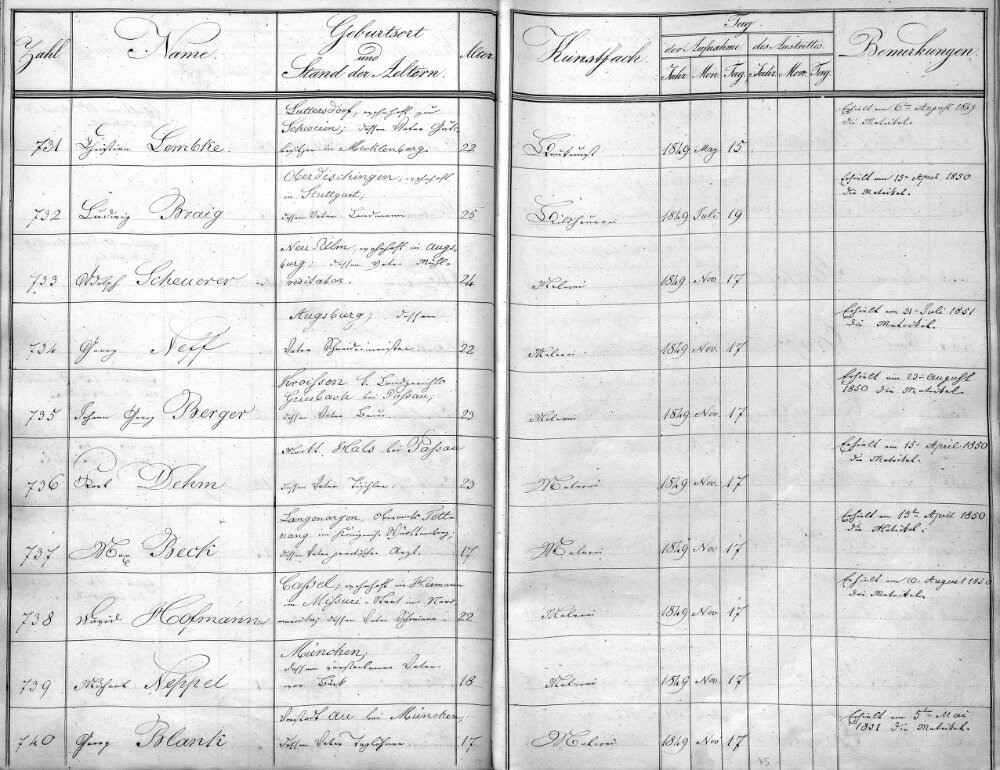 Zahl. Name. Geburtsort und Stand der Aeltern. Alter. Kunstfach. Tag. Bemerkungen.
der Aufnahme. des Austrittes.
Jahr. Mon. Tag. Jahr. Mon. Tag.
Luttersdorf, wohnhaft zu
Schwerin; dessen Vater Guts-
731 Christian Lembke. besitzer in Mecklenburg. 22 Baukunst 1849 May 15. Erhielt am 6ten August 1849
die Matrikel.
Oberdischingen, wohnhaft
in Stuttgart,
732 Ludwig Braig dessen Vater Landmann 25 Bildhauerei 1849 Juli 19 Erhielt am 15 April 1850
die Matrikel.
Neu-Ulm, wohnhaft in Augs-
burg; dessen Vater
733 Adolph Scheuerer visitator. 24 Malerei 1849 Nov. 17
Augsburg; dessen
734 Georg Neff Vater 22 Malerei 1849 Nov. 17 Erhielt am 31 Juli 1851
die Matrikel.
Kroissen k. Landgerichts
Griesbach bei Passau;
735 Johann Georg Berger dessen Vater Bauer. 23 Malerei 1849 Nov. 17 Erhielt am 23 August
1850 die Matrikel.
Markt Hals bei Passau
736 Karl Dehm dessen Vater Tischler 23 Malerei 1849 Nov. 17 Erhielt am 15 April 1850
die Matrikel.
Langenargen, Oberamts Tett-
nang im Königreich Württemberg;
737 Max Beck dessen Vater practischer Arzt. 17 Malerei 1849 Nov 17 Erhielt am 13ten April 1850
die Matrikel.
Cassel; wohnhaft in Hermann
im Missuri-Staat in Nord-
738 David Hofmann amerika; dessen Vater 22 Malerei 1849 Nov 17 Erhielt am 20 August 1850
die Matrikel.
München;
dessen verstorbener Vater
739 Michael Neppel war 18 Malerei 1849 Nov. 17
Vorstadt Au bei München;
740 Georg Blank dessen Vater Taglöhner 17 Malerei 1849 Nov 17 Erhielt am 5ten Mai
1851 die Matrikel.